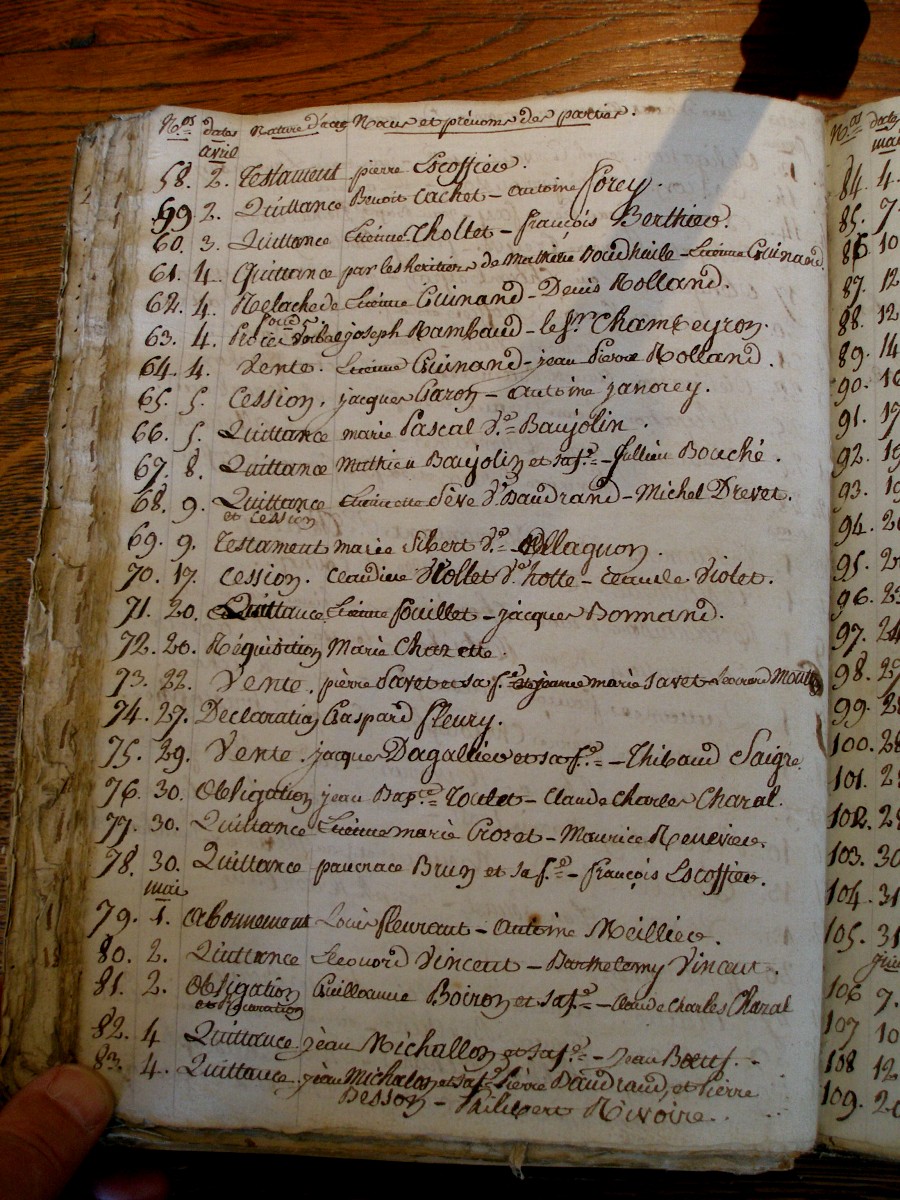 N.os dates Nature d'acte Noms et prénoms des parties.
avril
58. 2. Testament pierre Escoffier.
59 2. Quittance Benoit Cachet - antoine Forey.
60. 3. Quittance Etienne Tholtet - françois Berthier.
61. 4. Quittance par les heritiers de Mathieu - Etienne Guinand.
62. 4. Relache de Etienne Guinand - Denis Rolland.
63. 4. verbal joseph Rambaud - le Sr. Chambeyron.
64. 4. Vente. Etienne Guinand - jean Pierre Rolland.
65. 5. Cession. jacques Garon - antoine janorey.
66. 5. Quittance marie Pascal Ve. Baujolin.
67. 8. Quittance Mathieu Baujolin et sa fe. - Jullien Bouché.
68. 9. Quittance Etiennette Sève Ve. Daudrand - Michel Drevet.
et Cession
69. 9. Testament marie Sibert Ve.
70. 17. Cession. Claudine Viollet Ve. hotte - Claude Violet.
71. 20. Quittance Etienne fouillet - jacques Bonnand.
72. 20. Réquisition Marie Chazette.
73. 22. Vente. pièrre Savet et sa fe. marie Savet Leonard
74. 27. Declaration Gaspard fleury.
75. 29. Vente. jacques Dagallier et sa fe. - Thibaud Saigne
76. 30. Obligation jean Bapte. Toutet - Claude Charles Charal.
77. 30. Quittance Etienne marie Crozat - Maurice Renevier.
78. 30. Quittance pancrace Brun et sa fe. - françois Escoffier.
mai
79. 1. abonnement Louis fleurant - Antoine Meillier.
80. 2. Quittance Leonord Vincent - Barthelemy Vincent.
81. 2. Obligation Guillaume Boiron et sa fe. - Claude Charles Charal
82. 4 Quittance. jèan Michallon et sa fe. - Jean Bœuf.
83. 4. Quittance jèan Michalon et sa fe. Pièrre Daudrand, et Pierre
Besson - Philipert Rivoire.
N.os dates
mai
84. 4.
85. 7.
86. 10
87. 12
88. 12
89. 14
90.
91. 17
92.
93.
94.
95.
96.
97. 24
98.
99.
100.
101.
102.
103. 30
104. 31
105. 31
106 7.
107 10
108 12
109.